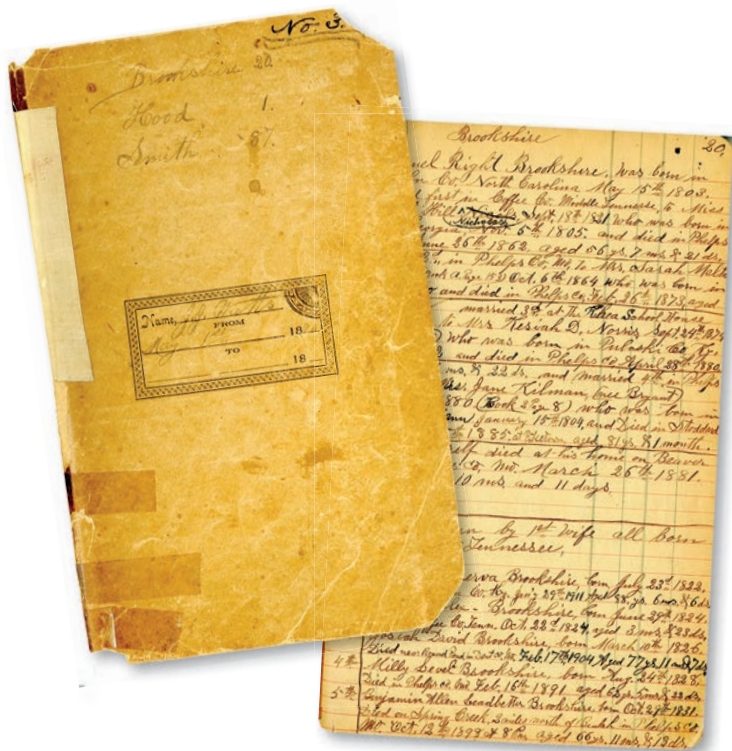 No. 3.
Brookshire 20
Hood 1.
Smith 57.
Name,
FROM
18
TO
18
Brookshire 20.
uel Right Brookshire, was born in
Co. North Carolina May 15th 1803.
first in Coffee Co. Middle Tennessee, to Miss
Hill Nichols Sept. 18th 1821 who was born in
orgia, Nov. 5th 1805. and died in Phelps
une 26th 1862. aged 56 yrs. 7 ms. & 21 ds.
in Phelps Co. Mo. to Mrs. Sarah
Oct. 6th 1864 who was born in
and died in Phelps Co. Feb. 26th 1873, aged
married 3rd, at the School House
to Mrs Kesiah D. Norris Sept 24th 1874
who was born in Pulaski Co. Ky.
and died in Phelps Co April 28th 1880.
ms. & 22 ds. and married 4th in Phelps
Mrs. Jane Kilman, (nee Bryant)
1880 (Book 2 Pge 8) who was born in
January 15th 1804, and Died in Stoddard
1885. aged 81 yrs. & 1 month.
self died at his home on Beaver
Co. Mo. March 26th 1881.
10 ms. and 11 days.
n by 1st Wife all born
Tennessee.
erva Brookshire, born July 23rd 1822.
Co. Ky. 29th 1911 Aged 88 yrs. 6 mos. & 6 ds.
Brookshire born June 29th 1824.
Co. Tenn. Oct. 22nd 1824, aged 3 ms & 23 ds.
David Brookshire, born March 10th 1826.
Died Feb. 17th 1904, Aged 77 ys. 11 m & 7 ds
4th Milly Brookshire, born Aug. 24th 1828.
Died in Phelps Co. Mo. Feb. 16th 1891 aged
5th Benjamin Allen Leadbetter Brookshire, born Oct. 29th 1831.
Died on Spring Creek, 2 miles north of in Phelps Co.
Mo. Oct. 12th 1898 at 8 Pm aged 66 yrs. 11 ms. & 13 ds.